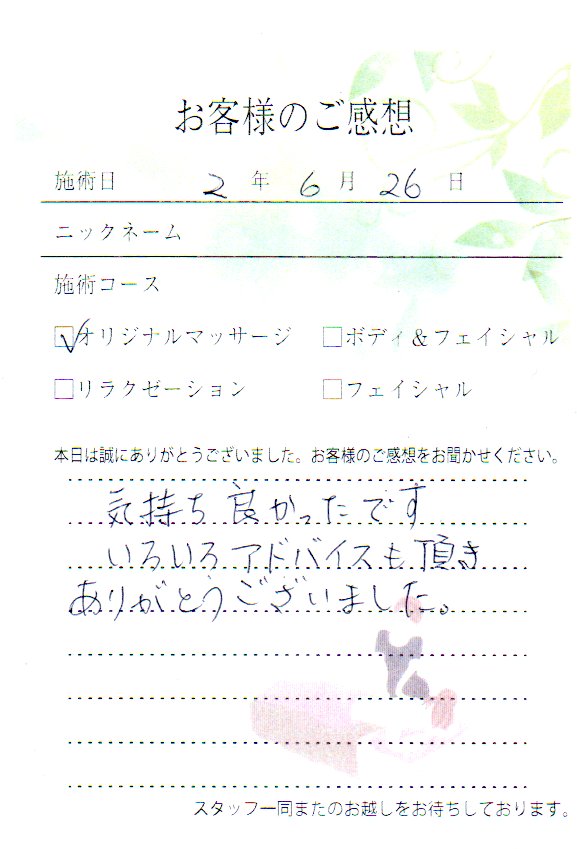 お客様のご感想
施術日 2 年 6 月 26 日
ニックネーム
施術コース
オリジナルマッサージ ボディ＆フェイシャル
リラクゼーション フェイシャル
本日は誠にありがとうございました。お客様のご感想をお聞かせください。
気持ち良かったです
いろいろアドバイスも頂き
ありがとうございました。
スタッフ一同またのお越しをお待ちしております。